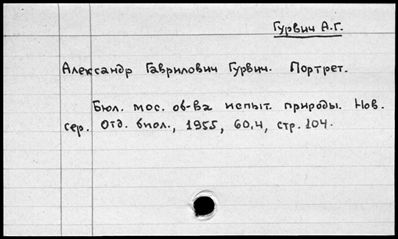 Гурвич А.Г.
Александр Гаврилович Гурвич. Портрет.
Бюл. мос. об-ва испыт. природы. Нов.
сер. Отд. биол., 1955, 60,4, стр. 104.